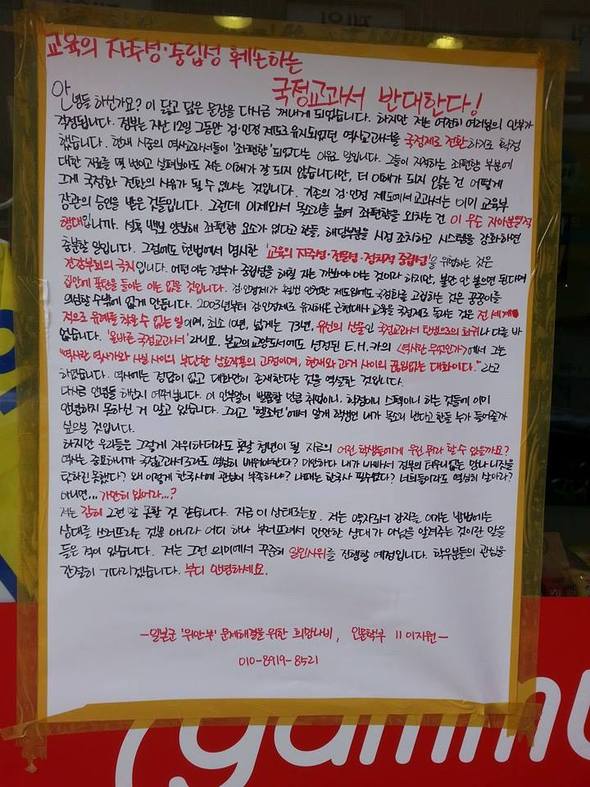 교육의 자주성·중립성 훼손하는
국정교과서 반대한다!
안녕들 하신가요? 이 닳고 닳은 문장을 다시금 꺼내게 되었습니다. 하지만 저는 여전히 여러분의 안부가
걱정됩니다. 정부는 지난 12일 그동안 검·인정 제도로 유지되었던 역사교과서를 국정제로 전환하기로 확정
했습니다. 현재 시중의 역사교과서들이 '좌편향' 되었다는 이유 말입니다. 그들이 지정하는 좌편향 부분에
대한 자료를 몇 번이고 살펴보아도 저는 이해가 잘 되지 않습니다만, 더 이해가 되지 않는 건 어떻게
그게 국정화 전환의 사유가 될 수 있냐는 것입니다. 기존의 검·인정 제도에서 교과서는 이미 교육부
장관의 승인을 받은 것들입니다. 그런데 이제와서 목소리를 높여 좌편향을 외치는 건 이 무슨 자아분열적
행태입니까. 설혹 백번 양보해 좌편향 요소가 있다고 한들, 해당부분을 시정 조치하고 시스템을 강화하면
충분할 일입니다. 그럼에도 헌법에서 명시한 '교육의 자주성·전문성·정치적 중립성'을 위협하는 것은
건강부회의 극치입니다. 어떤 이는 정부가 중립성을 해칠 지는 가봐야 아는 것이라 하지만, 불만 안 붙으면 된다며
집안에 폭탄을 들이는 이는 없을 것입니다. 검·인정제가 훨씬 안전한 제도임에도 국정화를 고집하는 것은 꿍꿍이를
의심할 수밖에 없게 만듭니다. 2003년부터 검·인정제로 유지해온 근현대사 교육을 국정제로 돌리는 것은 전 세계
적으로 유례를 찾을 수 없는 일이며, 최소 10년, 넓게는 73년, 유신의 산물인 국정교과서 탄생으로의 회귀나 다름 바
없습니다. '올바른 국정교과서' 되니요. 본교의 교양도서에도 선정된 E.H.카의 <역사란 무엇인가>에서 그는
"역사란 역사가와 사실 사이의 부단한 상호작용의 과정이며, 현재와 과거 사이의 끊임없는 대화이다." 라고
하였습니다. 역사에는 정답이 없고 대화만이 존재한다는 것을 역설한 것입니다.
다시금 안녕들 한지 여쭤봅니다. 이 안부말이 발품할 만큼 취업이니, 학점이니 스펙이니 하는 것들에 이미
안녕하지 못하신 거 알고 있습니다. 그리고 '헬조선'에서 일개 학생인 내가 목소리 낸다고 한들 누가 들어줄까
싶으실 것입니다.
하지만 우리들은 그렇게 자위하더라도 훗날 청년이 될 지금의 어린 학생들에게 우린 뭐라 할 수 있을까요?
역사는 중요하니까 국정교과서로라도 열심히 배워야한다? 미안하다 내가 바빠서 정부의 터무니없는 일에 나지를
탓하진 못했다? 왜 이렇게 한국사에 관심이 부족하냐? 나때는 한국사 필수였다? 너희들이라도 열심히 살아라?
아니면... 가만히 있어라...?
저는 감히 그런 말 못할 것 같습니다. 지금 이 상태로는요. 저는 약자로서 강자를 이기는 방법에는
상대를 쓰러뜨리는 것뿐 아니라 어디 하나 부러뜨려서 만만한 상대가 아님을 알려주는 것이란 말을
들은 적이 있습니다. 저는 그런 의미에서 꾸준히 일인시위를 진행할 예정입니다. 학우분들의 관심을
간절히 기다리겠습니다. 부디 안녕하세요.
-일본군 '위안부' 문제해결을 위한 희망나비, 인문학부 11 이지원-
010-8919-8521
gummy